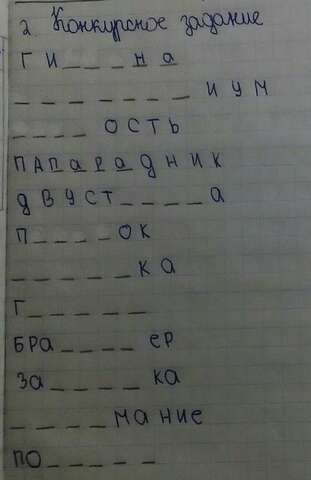 2. Конкурсное задание
ГИ_ _ _ на
_ _ _ _ _ _ _ _ ИУМ
_ _ _ _ ОСТЬ
ПАПАРАДНИК
ДВУСТ_ _ _ _ а
П_ _ _ _ ОК
_ _ _ _ _ _ КА
Г_ _ _ _ _
БРА_ _ _ _ ер
За_ _ _ _ ка
_ _ _ _ мание
ПО_ _ _ _ _